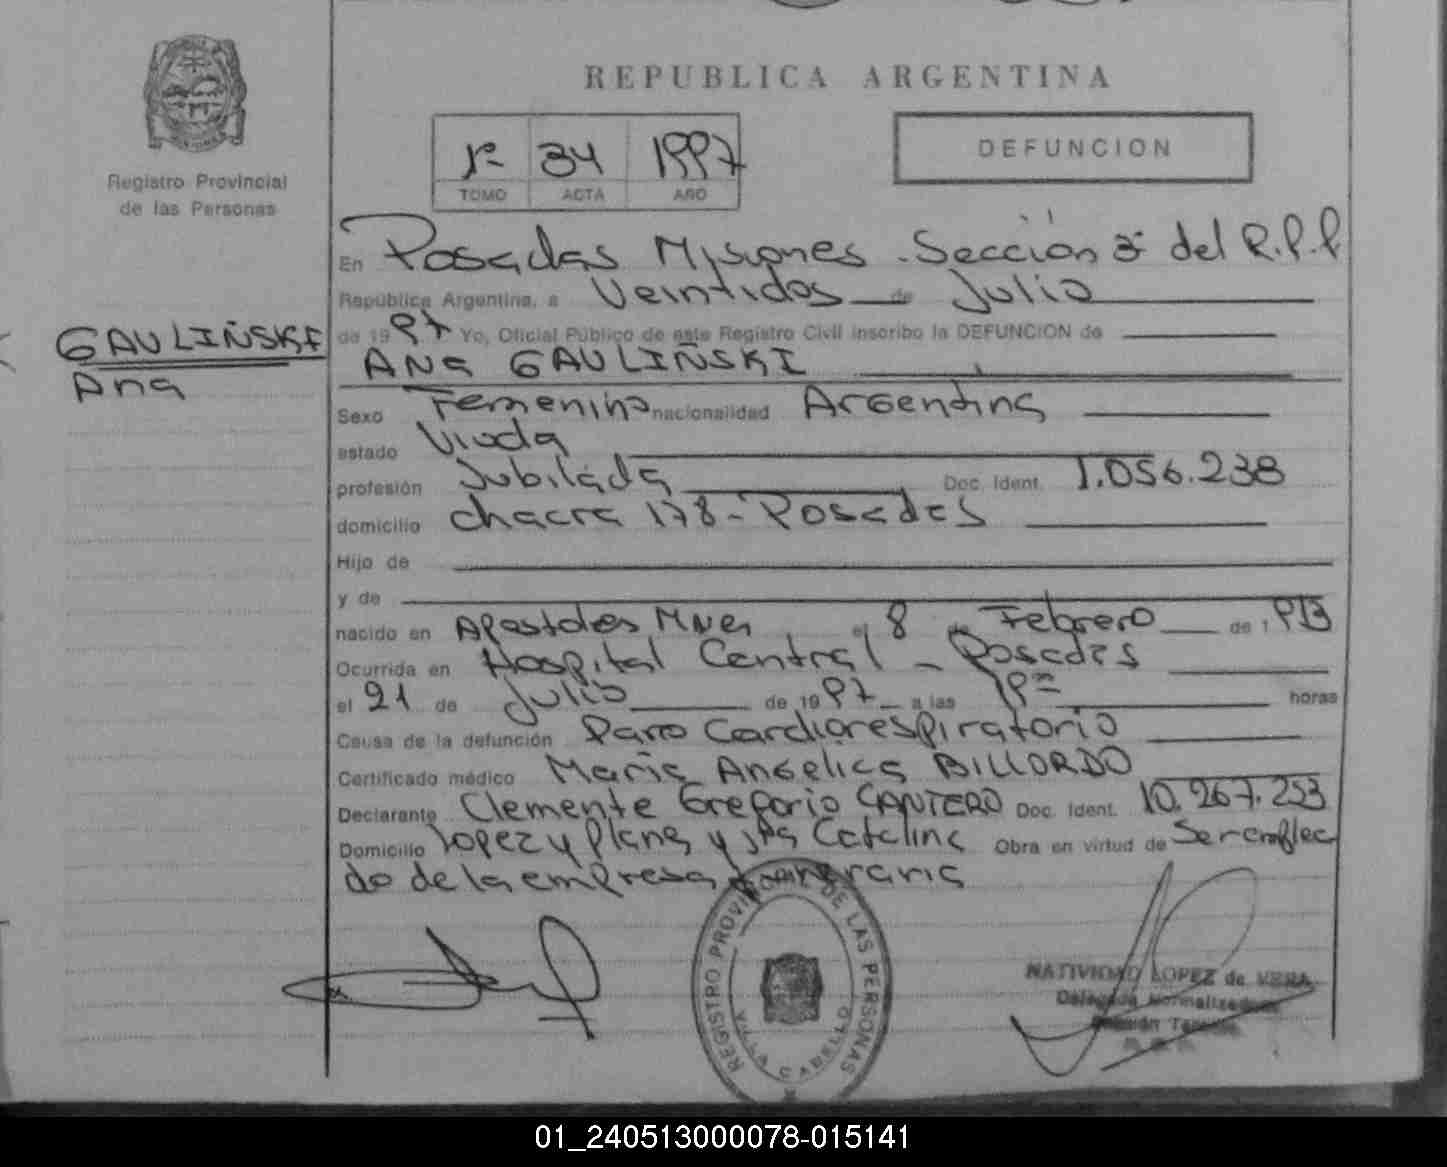 REPUBLICA ARGENTINA
Registro Provincial
de las Personas
1º 34 1997
TOMO ACTA AÑO
DEFUNCION
GAULIÑSKI
Ana
En Posadas Misiones. Sección 3ª del R.P.P
República Argentina, a Veintidos de Julio
de 1997 Yo, Oficial Público de este Registro Civil inscribo la DEFUNCION de
ANA GAULIÑSKI
Sexo Femenino nacionalidad Argentina
estado Viuda
profesión Jubilada Doc. Ident. 1.056.238
domicilio chacra 178 - Posadas
Hijo de
y de
nacido en Apostoles Mnes el 8 de Febrero de 1913
Ocurrida en Hospital Central - Posadas
el 21 de Julio de 1997 a las horas
Causa de la defunción Paro Cardiorespiratorio
Certificado médico Maria Angelica BILLORDO
Declarante Clemente Gregorio CANTERO Doc. Ident. 10.267.253
Domicilio Lopez y Planes y Sta Catalina Obra en virtud de Ser emplea
do de la empresa funeraria
REGISTRO PROVINCIAL DE LAS PERSONAS
VILLA CABELLO
NATIVIDAD LOPEZ de VERA
Delegada Normalizadora
01_240513000078-015141